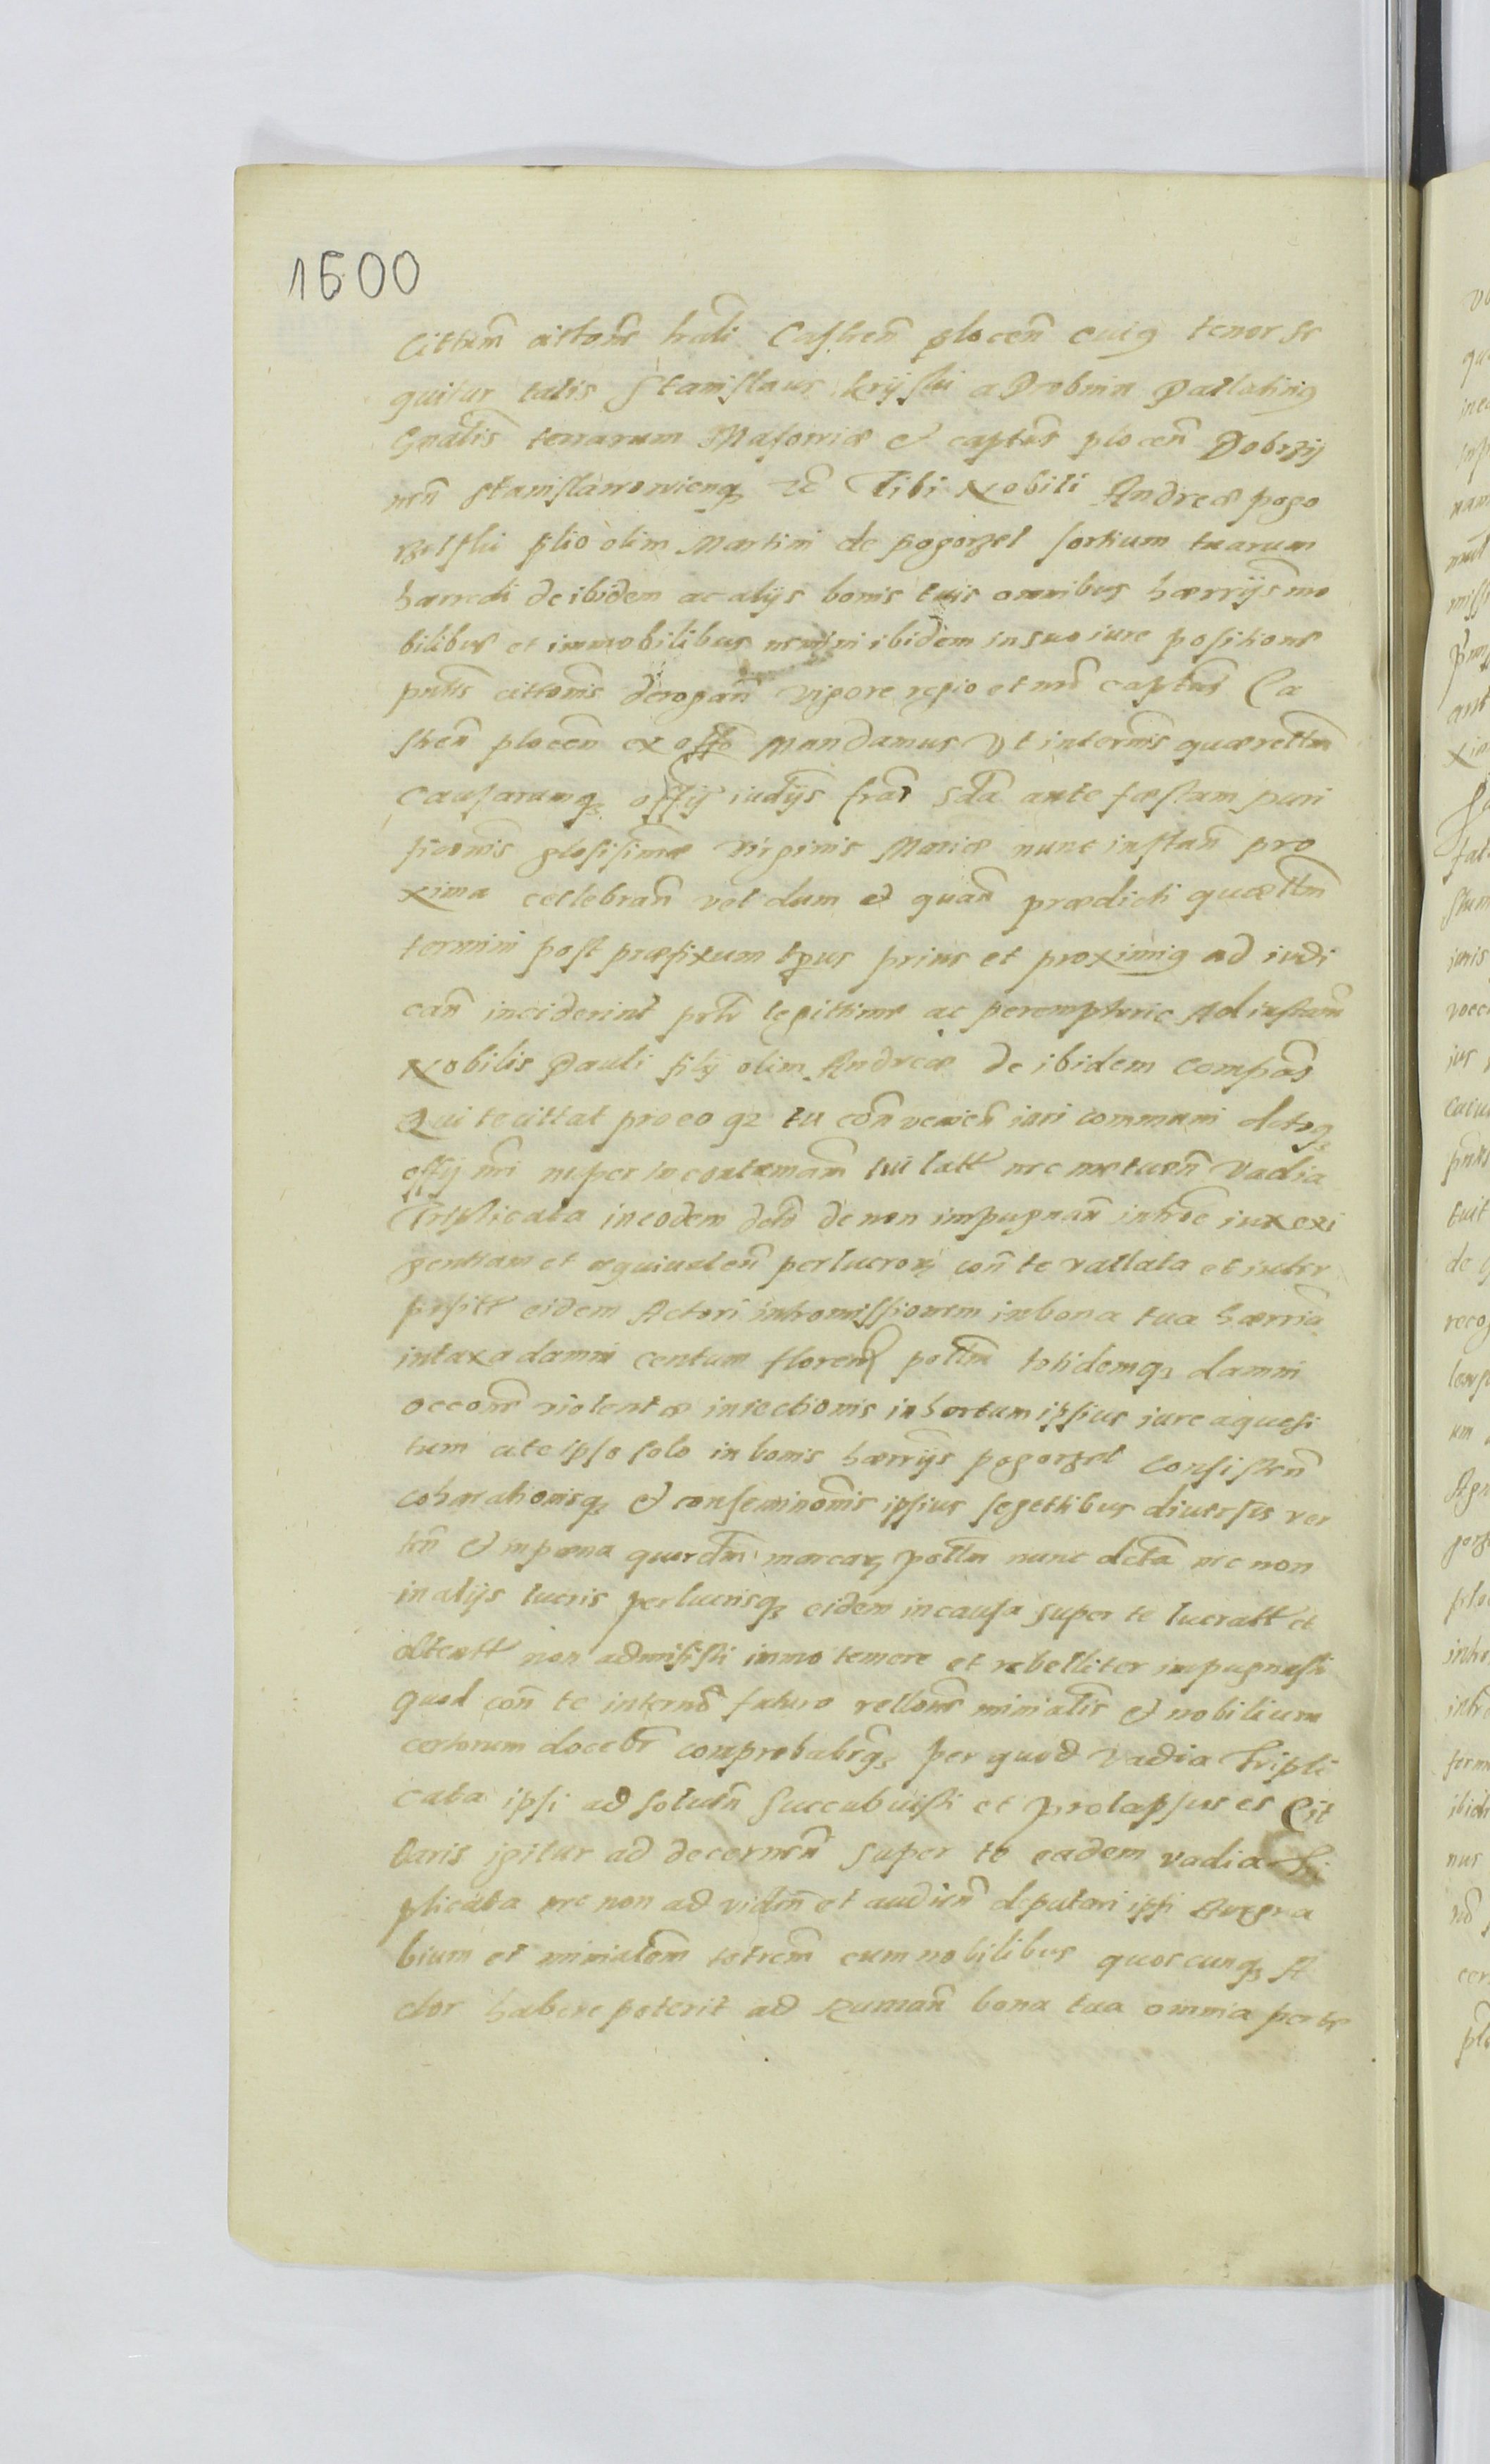 1600
Cittum cittone krali Castren plocen cuius tenor se
quitur talis Stanislaus kryski a Drobnin Pallatinus
Gnalis terrarum Masoviæ et captus plocen Dobrzij
nen Stanislawowienq etc Tibi Nobili Andreæ pogo
rzelski filio olim Martini de pogorzel sortium tuarum
hæredi de ibidem ac alijs bonis tuis omnibus hærrijs mo
bilibus et immobilibus nemini ibidem in suo iure positione
pntis cittonis derogan vigore regio et nro captus Ca
stren plocen ex offo Mandamus Vt in ternis quærellm
causarumq offij iudijs fra sda ante festam puri
ficonis glosissimæ Virginis Mariæ nunc instan pro
xima cellebran vel dum et quan prædicti quællm
termini post præfixum tpus prius et proximius ad iudi
can inciderint legittime ac peremptorie Ad instan
Nobilis Pauli filij olim Andreæ de ibidem Compas
Qui te cittat pro eo qz tu con venien iuri communi detoq
offij nri nuper in contumam tui latt nec metuen Vadia
Triplicata in eodem deto de non impugnan introe iux exi
gentiam et æquivalen perlucror con te vallata et inter
positt eidem Actori intromissionem in bona tua hærria
in taxa damni centum floren polln totidemq damni
occone violentæ iniectionis in hortum ipsius iure aquesi
tum a te ipso solo in bonis hærrijs pogorzel Consisten
cohærationisq et conseminonis ipsius segettibus diversis ver
ten et in pæna quordm marcar polln nunc deta nec non
in alijs lucris perlucrisq eidem in causa super te lucratt et
obtentt non admisisti immo temere et rebelliter impugnasti
quod con te in termo futuro rellone minialis et nobilium
certorum docebr comprobabrq per quod Vadia tripli
cata ipsi ad soluen succubuisti et prolapsus es Cit
taris igitur ad decernen super te eadem vadia tri
plicata nec non ad viden et audien deputari ipsi
bium et minialem totrem cum nobilibus quoscunq A
ctor habere poterit ad rumān bona tua omnia per te